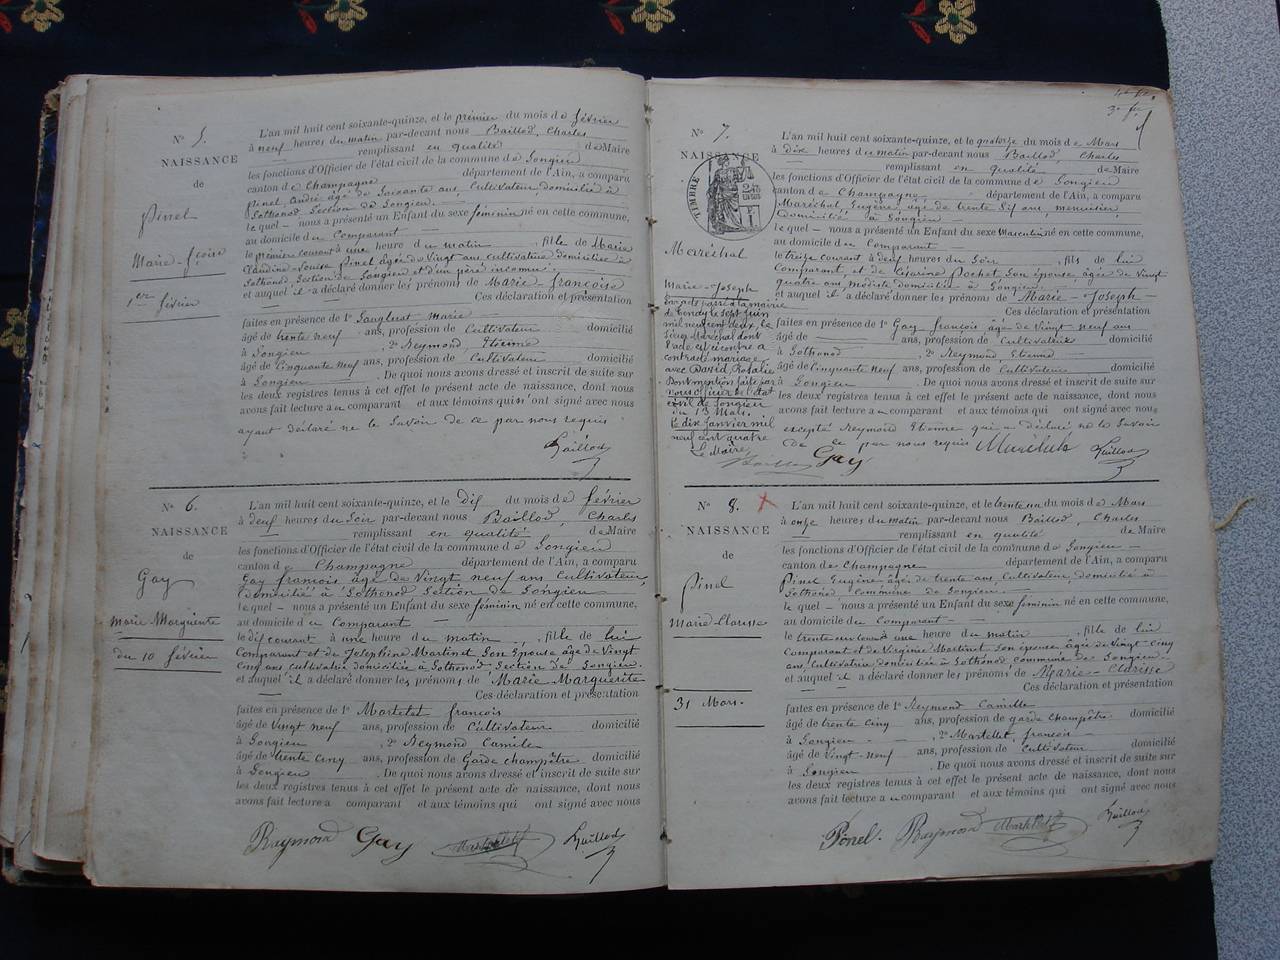 N° 5.
NAISSANCE
de
Pinel
Marie-fçoise
1er février
L'an mil huit cent soixante-quinze, et le premier du mois de février
à neuf heures du matin par-devant nous Baillod, Charles
remplissant en qualité de Maire
les fonctions d'Officier de l'état civil de la commune de Songieu
canton de Champagne département de l'Ain, a comparu
Pinel, André âgé de soixante ans, Cultivateur domicilié à
Sothonod Section de Songieu.
le quel nous a présenté un Enfant du sexe féminin né en cette commune,
au domicile du Comparant
le premier courant à une heure du matin, fille de Marie
Claudine Louise Pinel âgée de Vingt ans cultivatrice domiciliée à
Sothonod, Section de Songieu et d'un père inconnu.
et auquel il a déclaré donner les prénoms de Marie-françoise
Ces déclaration et présentation
faites en présence de 1° Marie
âgé de trente neuf ans, profession de Cultivateur domicilié
à Songieu, 2° Reymond, Etienne
âgé de Cinquante neuf ans, profession de Cultivateur domicilié
à Songieu. De quoi nous avons dressé et inscrit de suite sur
les deux registres tenus à cet effet le présent acte de naissance, dont nous
avons fait lecture au comparant et aux témoins qui n'ont signé avec nous
ayant déclaré ne le savoir de ce par nous requis
Baillod
N° 6.
NAISSANCE
de
Gay
Marie Marguerite
du 10 février
L'an mil huit cent soixante-quinze, et le dix du mois de février
à deux heures du soir par-devant nous Baillod, Charles
remplissant en qualité de Maire
les fonctions d'Officier de l'état civil de la commune de Songieu
canton de Champagne département de l'Ain, a comparu
Gay françois âgé de Vingt neuf ans Cultivateur,
domicilié à Sothonod Section de Songieu
le quel nous a présenté un Enfant du sexe féminin né en cette commune,
au domicile du Comparant
le dix courant à une heure du matin, fille de lui
Comparant et de Joséphine Martinet son épouse âgée de Vingt
Cinq ans cultivatrice domiciliée à Sothonod Section de Songieu.
et auquel il a déclaré donner les prénoms de Marie Marguerite
Ces déclaration et présentation
faites en présence de 1° Martelet françois
âgé de Vingt neuf ans, profession de Cultivateur domicilié
à Songieu, 2° Reymond Camille
âgé de trente cinq ans, profession de Garde champêtre domicilié
à Songieu. De quoi nous avons dressé et inscrit de suite sur
les deux registres tenus à cet effet le présent acte de naissance, dont nous
avons fait lecture a comparant et aux témoins qui ont signé avec nous
Raymond Gay Martellet Baillod
3e f
N° 7.
NAISSANCE
TIMBRE
Maréchal
Marie-Joseph
mil neuf cent deux, le
Sieur Maréchal dont
l'acte ci contre a
contracté mariage
avec David, Rosalie
Dont mention faite par
nous officier de l'état
civil de Songieu
du 13 Mars.
Le dix Janvier mil
neuf cent quatre
Le Maire,
L'an mil huit cent soixante-quinze, et le quatorze du mois de Mars
à dix heures du matin par-devant nous Baillod, Charles
remplissant en qualité de Maire
les fonctions d'Officier de l'état civil de la commune de Songieu
canton de Champagne département de l'Ain, a comparu
Maréchal Eugène âgé de trente six ans, menuisier,
domicilié à Songieu
le quel nous a présenté un Enfant du sexe Masculin né en cette commune,
au domicile du Comparant
le treize courant à deux heures du soir, fils de lui
Comparant, et de Césarine Pochet son épouse, âgée de Vingt
quatre ans, modiste domiciliée à Songieu.
et auquel il a déclaré donner les prénoms de Marie-Joseph
Ces déclaration et présentation
faites en présence de 1° Gay françois âgé de Vingt neuf ans
âgé de ans, profession de Cultivateur domicilié
à Sothonod, 2° Reymond, Etienne
âgé de Cinquante neuf ans, profession de Cultivateur domicilié
à Songieu. De quoi nous avons dressé et inscrit de suite sur
les deux registres tenus à cet effet le présent acte de naissance, dont nous
avons fait lecture au comparant et aux témoins qui ont signé avec nous
excepté Reymond Etienne qui a déclaré ne le savoir
de ce par nous requis Maréchal Baillod
Gay
N° 8.
NAISSANCE
de
Pinel
Marie Clarisse
31 Mars.
L'an mil huit cent soixante-quinze, et le trente un du mois de Mars
à onze heures du matin par-devant nous Baillod, Charles
remplissant en qualité de Maire
les fonctions d'Officier de l'état civil de la commune de Songieu
canton de Champagne département de l'Ain, a comparu
Pinel Eugène âgé de trente ans, Cultivateur domicilié à
Sothonod commune de Songieu.
le quel nous a présenté un Enfant du sexe féminin né en cette commune,
au domicile du Comparant
le trente un courant à une heure du matin, fille de lui
Comparant et de Virginie Martinet son épouse âgée de Vingt cinq
ans, Cultivatrice domiciliée à Sothonod commune de Songieu,
et auquel il a déclaré donner les prénoms de Marie-Clarisse
Ces déclaration et présentation
faites en présence de 1° Reymond Camille
âgé de trente cinq ans, profession de garde champêtre domicilié
à Songieu, 2° Martellet, françois
âgé de Vingt-neuf ans, profession de Cultivateur domicilié
à Songieu. De quoi nous avons dressé et inscrit de suite sur
les deux registres tenus à cet effet le présent acte de naissance, dont nous
avons fait lecture au comparant et aux témoins qui ont signé avec nous
Pinel. Raymond Martellet Baillod